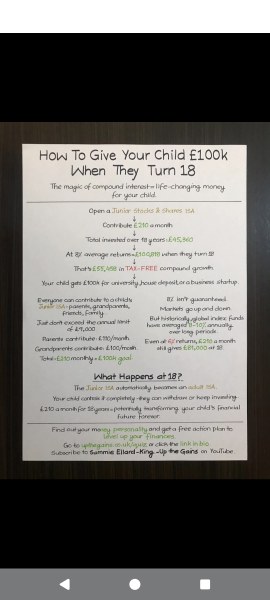 How To Give Your Child £100k
When They Turn 18
The magic of compound interest = life-changing money
for your child.
Open a Junior Stocks & Shares ISA
↓
Contribute £210 a month
↓
Total invested over 18 years: £45,360
↓
At 8% average returns = £100,818 when they turn 18
↓
That's £55,458 in TAX-FREE compound growth.
↓
Your child gets £100k for university, house deposit, or a business startup.
Everyone can contribute to a child's
Junior ISA - parents, grandparents,
friends, family.
Just don't exceed the annual limit
of £9,000
Parents contribute: £110/month
Grandparents contribute: £100/month
Total = £210 monthly = £100k goal
8% isn't guaranteed.
Markets go up and down.
But historically, global index funds
have averaged 8-10% annually
over long periods.
Even at 6% returns, £210 a month
still gives £81,000 at 18
What Happens at 18?
The Junior ISA automatically becomes an adult ISA.
Your child controls it completely - they can withdraw or keep investing.
£210 a month for 18 years = potentially transforming your child's financial
future forever.
Find out your money personality and get a free action plan to
level up your finances.
Go to upthegains.co.uk/quiz or click the link in bio.
Subscribe to Sammie Ellard-King - Up the Gains on YouTube